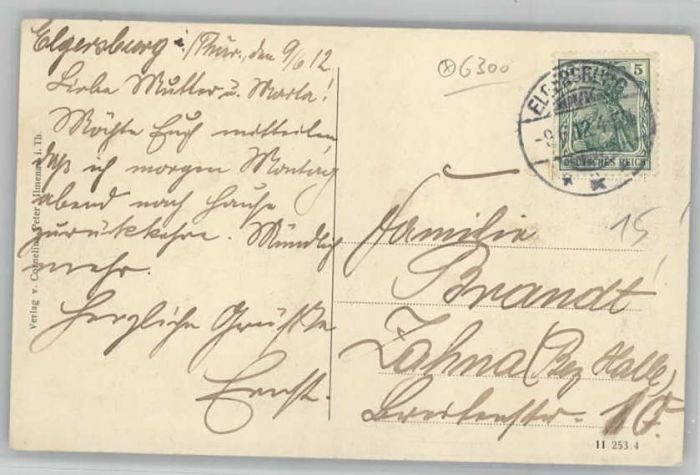 Elgersburg i/Thür., den 9/6 12.
Liebe Mutter u. Marta!
Möchte Euch mitteilen
daß ich morgen Montag
abend nach Hause
zurükkehre. Mündlich
mehr.
Herzliche Grüße
Ernst.
Verlag v. Cornelius Peter, Ilmenau i. Th.
G300
5
ELGERSBURG
-9.6.12.4-5N
DEUTSCHES REICH
15
Familie
Brandt
Zahna (Bez Halle)
Breitenstr. 15.
11 253 4